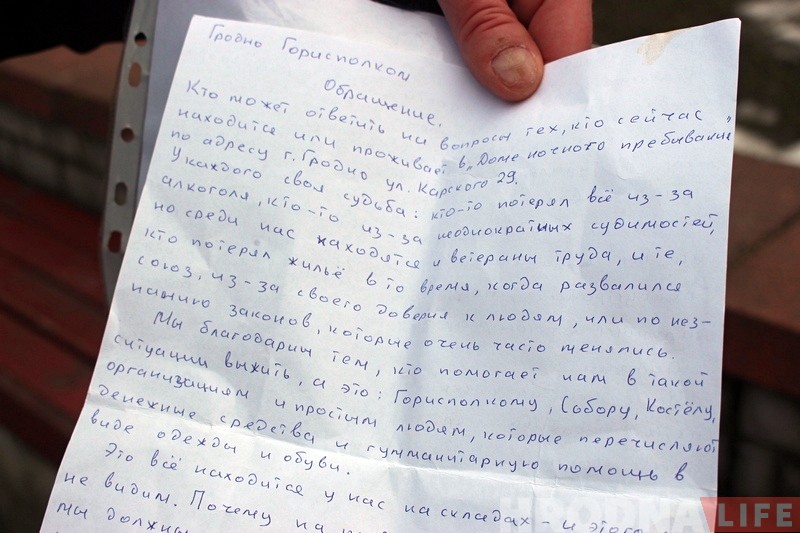 Гродно Горисполком
Обращение.
Кто может ответить на вопросы тех, кто сейчас
находится или проживает в „Доме ночного пребывания"
по адресу г. Гродно ул. Карского 29.
У каждого своя судьба: кто-то потерял всё из-за
алкоголя, кто-то из-за неоднократных судимостей,
но среди нас находятся и ветераны труда, и те,
кто потерял жильё в то время, когда развалился
союз, из-за своего доверия к людям, или по нез-
нанию законов, которые очень часто менялись.
Мы благодарим тем, кто помогает нам в такой
ситуации выжить, а это: Горисполкому, Собору, Костёлу,
организациям и простым людям, которые перечисляют
денежные средства и гумманитарную помощь в
виде одежды и обуви.
Это всё находится у нас на складах - и этого
не видим. Почему на
мы должны
HRODNA LIFE